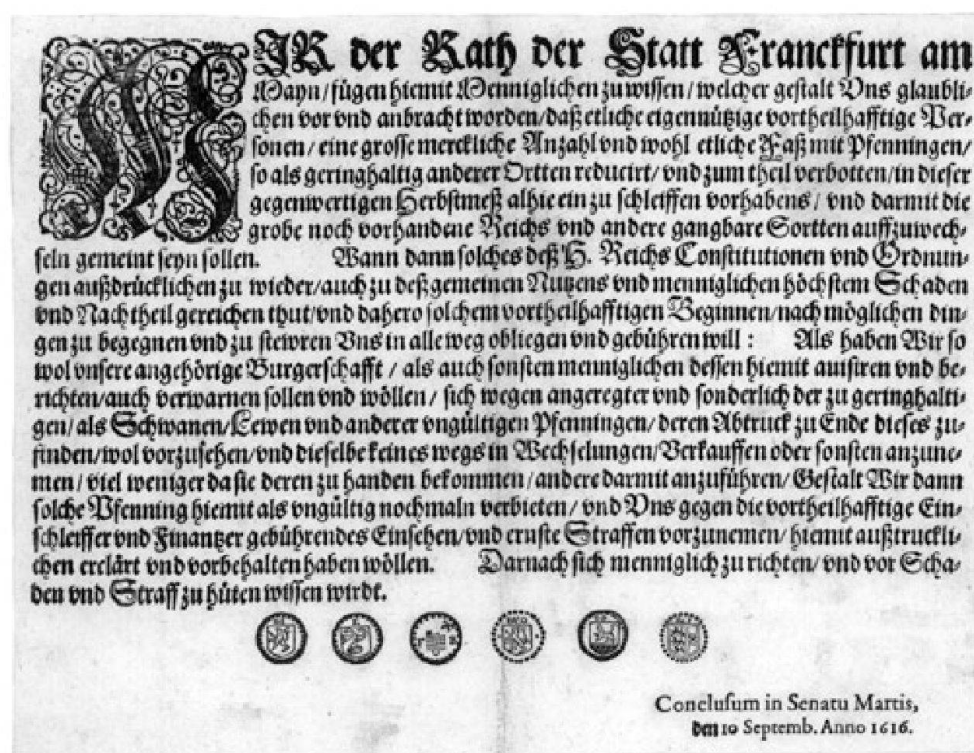 WIR der Rath der Statt Franckfurt am
Mayn/fügen hiemit Menniglichen zu wissen/welcher gestalt Vns glaubli-
chen vor vnd anbracht worden/daß etliche eigennützige vortheilhafftige Per-
sonen/eine grosse merckliche Anzahl vnd wohl etliche Faß mit Pfenningen/
so als geringhaltig anderer Ortten reducirt/vnd zum theil verbotten/in dieser
gegenwertigen Herbstmeß alhie ein zu schleiffen vorhabens/vnd darmit die
grobe noch vorhandene Reichs vnd andere gangbare Sortten auffzuwech-
seln gemeint seyn sollen. Wann dann solches deß H. Reichs Constitutionen vnd Ordnun-
gen außdrücklichen zu wieder/auch zu deß gemeinen Nutzens vnd menniglichen höchstem Schaden
vnd Nachtheil gereichen thut/vnd dahero solchem vortheilhafftigen Beginnen/nach möglichen din-
gen zu begegnen vnd zu stewren Vns in alle weg obliegen vnd gebühren will: Als haben Wir so
wol vnsere angehörige Burgerschafft/als auch sonsten menniglichen dessen hiemit auisiren vnd be-
richten/auch verwarnen sollen vnd wöllen/sich wegen angeregter vnd sonderlich der zu geringhalti-
gen/als Schwanen/Lewen vnd anderer vngültigen Pfenningen/deren Abtruck zu Ende dieses zu-
finden/wol vorzusehen/vnd dieselbe keines wegs in Wechselungen/Verkauffen oder sonsten anzune-
men/viel weniger da sie deren zu handen bekommen/andere darmit anzuführen/Gestalt Wir dann
solche Pfenning hiemit als vngültig nochmaln verbieten/vnd Vns gegen die vortheilhafftige Ein-
schleiffer vnd Finantzer gebührendes Einsehen/vnd ernste Straffen vorzunemen/hiemit außtruckli-
chen erclärt vnd vorbehalten haben wöllen. Darnach sich menniglich zu richten/vnd vor Scha-
den vnd Straff zu hüten wissen wirdt.
Conclusum in Senatu Martis,
den 10 Septemb. Anno 1616.